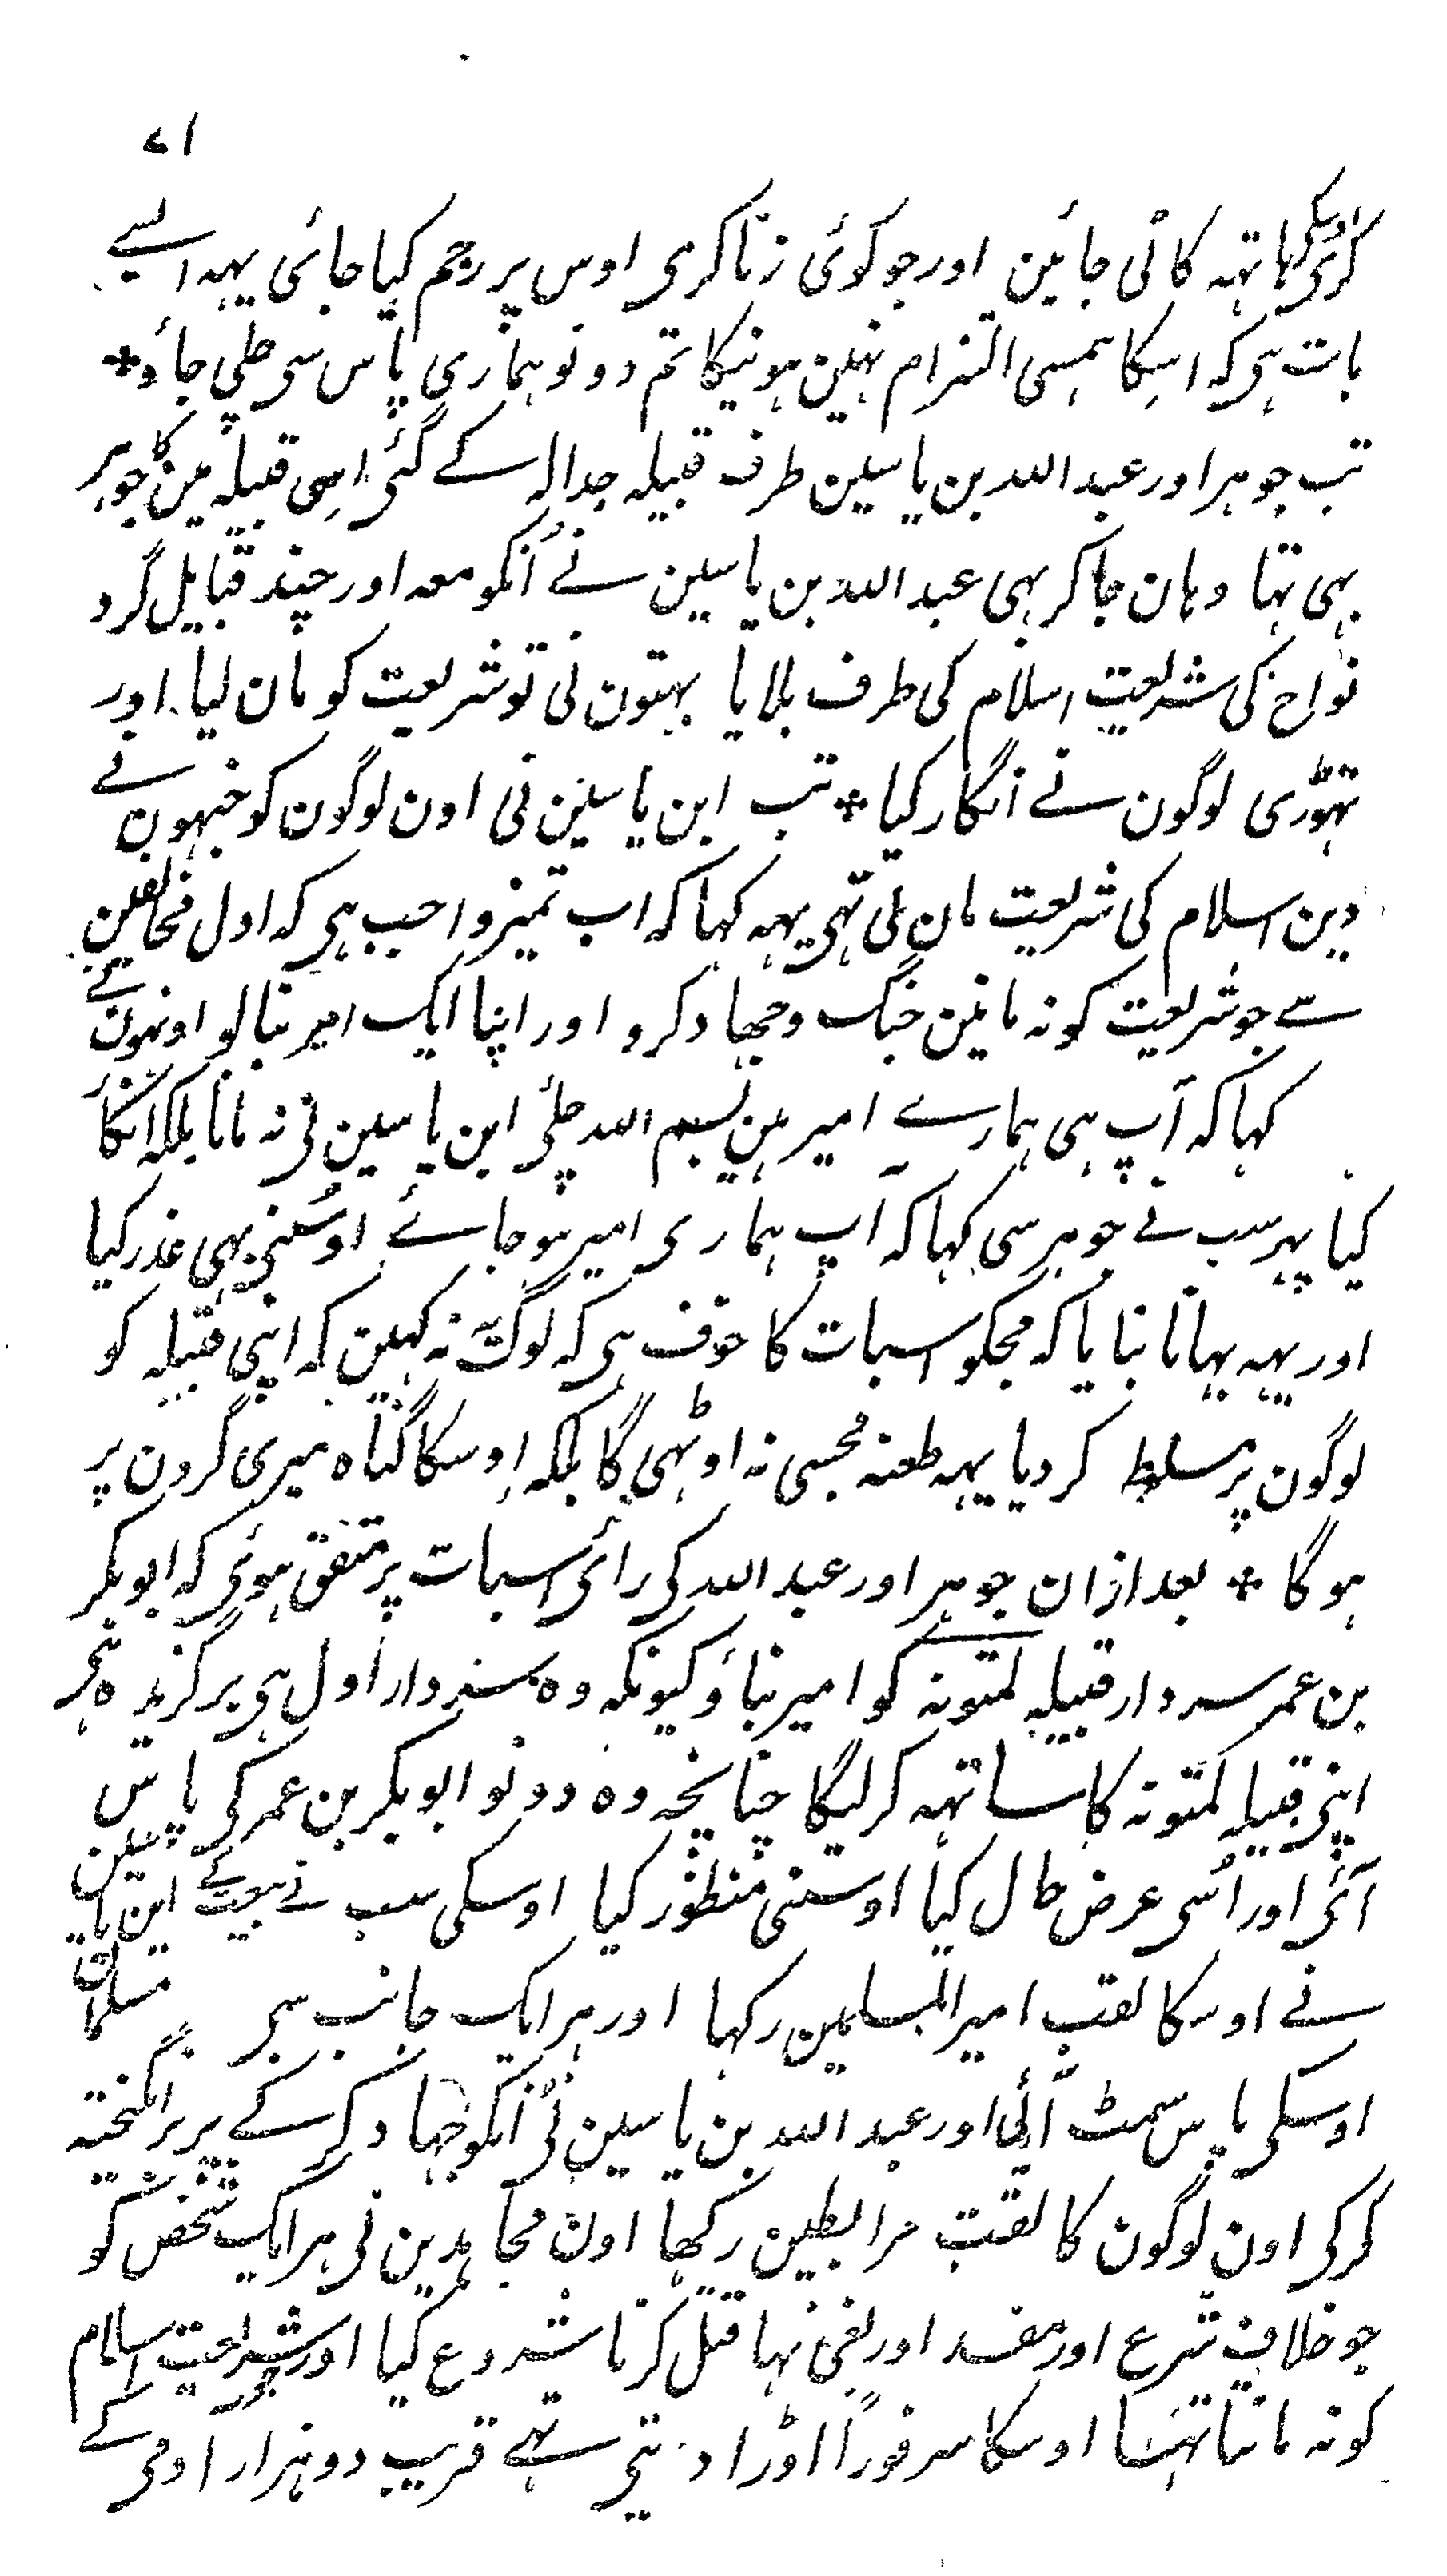 ۷۱
کری اوسکی ہاتہہ کاٹی جائین اور جو کوئی زنا کری اوس پر رجم کیا جائی یہہ ایسے
بات ہی کہ اسکا ہمسی التزام نہین ہونیکا تم دونو ہماری پاس سی چلی جاؤ *
تب جوہر اور عبد اللہ بن یاسین طرف قبیلہ جدالہ کے گئی اسی قبیلہ مین کا جوہر
بہی تہا وہان جا کر بہی عبد اللہ بن یاسین نے اُنکو معہ اور چند قبایل گرد
نواح کی شریعت اسلام کی طرف بلایا بہتون نی تو شریعت کو مان لیا اور
تہوڑی لوگون نے انکار کیا * تب ابن یاسین نی اون لوگون کو جنہون نے
دین اسلام کی شریعت مان لی تہی یہہ کہا کہ اب تمپر واجب ہی کہ اول مخالفین
سے جو شریعت کو نہ مانین جنگ و جہاد کرو اور اپنا ایک امیر بنا لو اونہون نے
کہا کہ آپ ہی ہمارے امیر ہین بسم اللہ چلئی ابن یاسین نی نہ مانا بلکہ انکار
کیا پہر سب نے جوہر سی کہا کہ آپ ہماری امیر ہو جائے اوسنی بہی عذر کیا
اور یہہ بہانا بنایا کہ مجکو اسبات کا خوف ہی کہ لوگ نہ کہین کہ اپنی قبیلہ کو
لوگون پر مسلط کر دیا یہہ طعنہ مجسی نہ اوٹہی گا بلکہ اوسکا گناہ میری گردن پر
ہو گا * بعد ازان جوہر اور عبد اللہ کی رائی اسبات پر متفق ہوئی کہ ابوبکر
بن عمر سردار قبیلہ لمتونہ کو امیر بناؤ کیونکہ وہ سردار اول ہی برگزیدہ ہی
اپنی قبیلہ لمتونہ کا ساتہہ کر لیگا چنانچہ وہ دونو ابوبکر بن عمر کی پاس
آئی اور اُسی عرض حال کیا اوسنی منظور کیا اوسکی سب نے بیعت کے ابن یاسین
نے اوسکا لقب امیر المسلمین رکہا اور ہر ایک جانب سی مسلمان
اوسکی پاس سمٹ آئی اور عبد اللہ بن یاسین نی اُنکو جہاد کرنے پر برانگیختہ
کرکی اون لوگون کا لقب مرابطین رکہا اون مجاہدین نی ہر ایک شخص کو
جو خلاف شرع اور مفسد اور لغی تہا قتل کرنا شروع کیا اور جو شریعت اسلام
کو نہ مانتا تہا اوسکا سر فوراً اوڑا دیتی تہے قریب دو ہزار ادمی کے